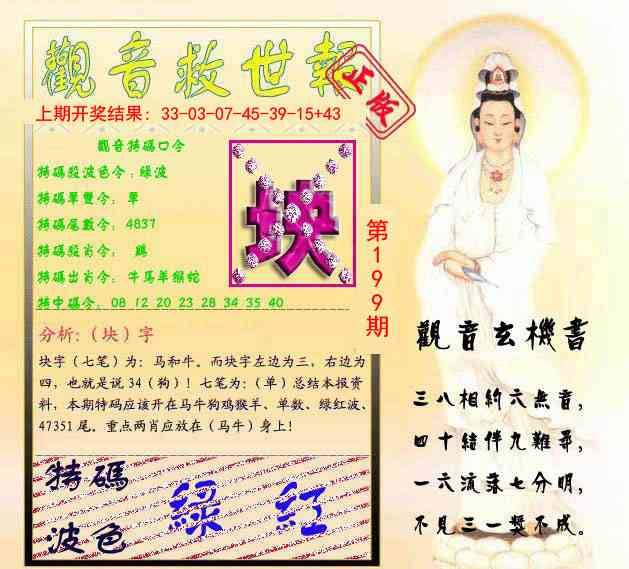 觀音救世報
正版
上期开奖结果：33-03-07-45-39-15+43
觀音特碼口令
特碼段波色令：綠波
特碼單雙令：單
特碼尾數令：4837
特碼殺肖令：鷄
特碼出肖令：牛馬羊猴蛇
特中碼令：08 12 20 23 28 34 35 40
块
第199期
分析：（块）字
块字（七笔）为：马和牛。而块字左边为三，右边为
四，也就是说34（狗）！七笔为：（单）总结本报资
料，本期特码应该开在马牛狗鸡猴羊、单数、绿红波、
47351尾。重点两肖应放在（马牛）身上！
特碼
波色
綠 紅
觀音玄機書
三八相約六無音，
四十結伴九難尋，
一六流落七分明，
不見三一獎不成。